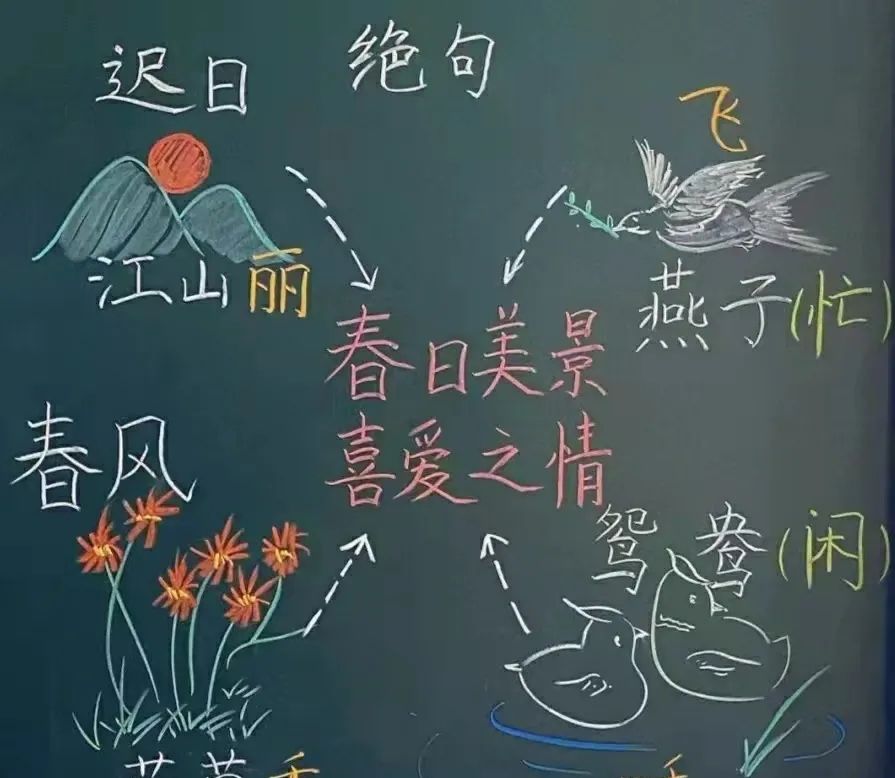 绝句
迟日
江山丽
飞
燕子(忙)
春日美景
喜爱之情
春风
鸳鸯(闲)
花草香